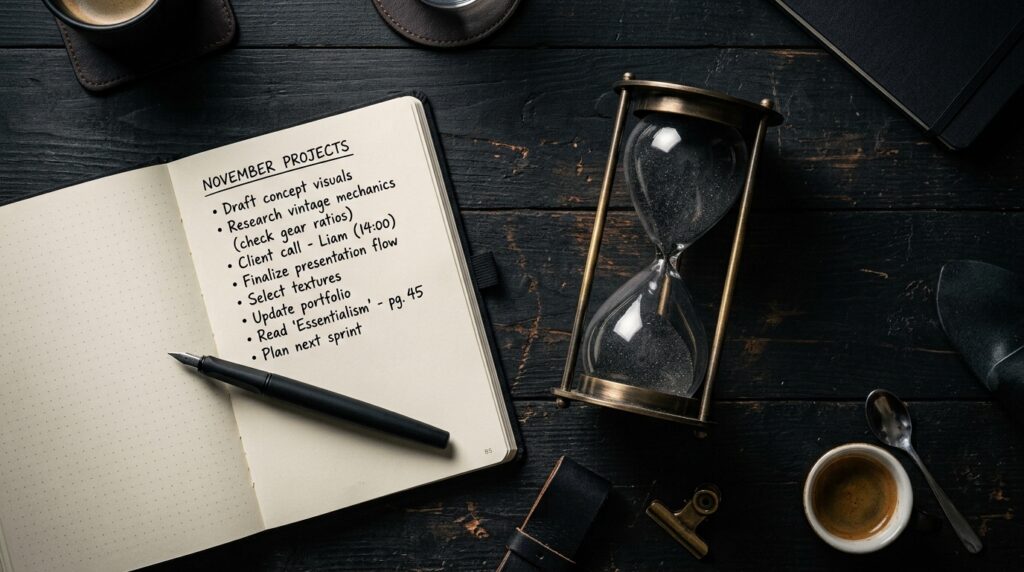 NOVEMBER PROJECTS
• Draft concept visuals
• Research vintage mechanics
(check gear ratios)
• Client call - Liam (14:00)
• Finalize presentation flow
• Select textures
• Update portfolio
• Read 'Essentialism' - pg. 45
• Plan next sprint
85